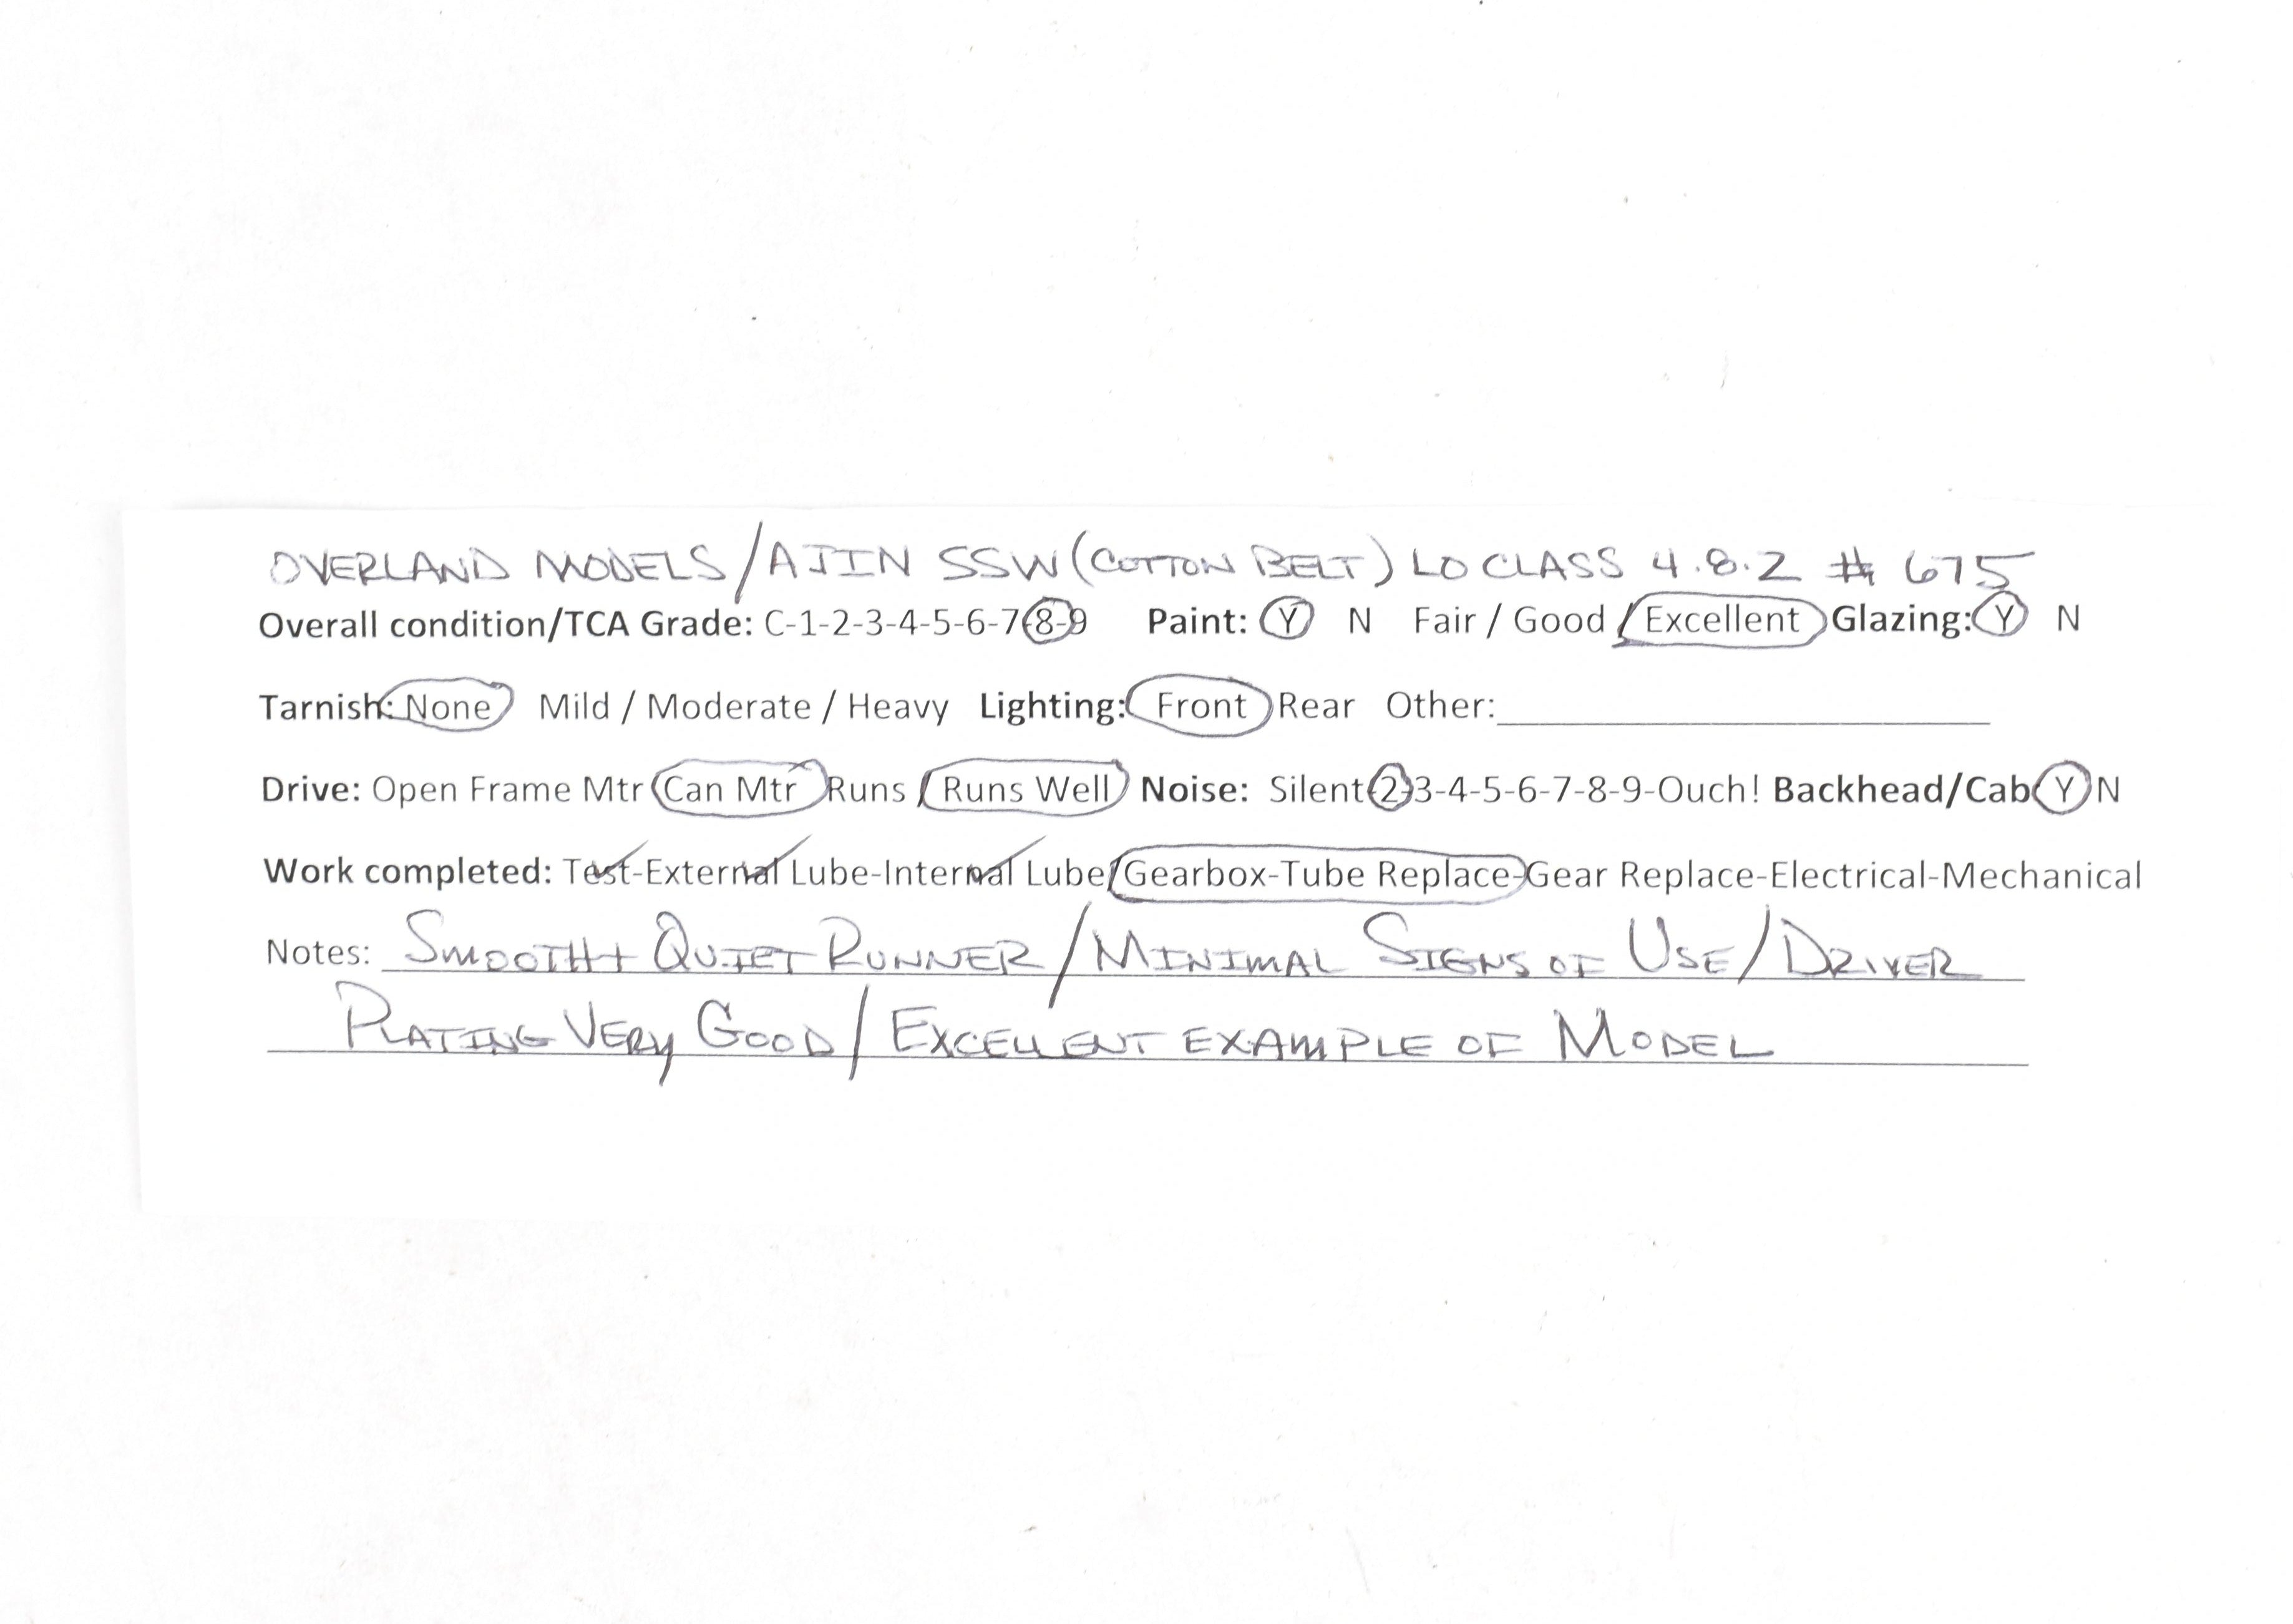 OVERLAND MODELS/AJIN SSW (COTTON BELT) LO CLASS 4.8.2 # 675
Overall condition/TCA Grade: C-1-2-3-4-5-6-7-8-9 Paint: Y N Fair / Good / Excellent Glazing: Y N
Tarnish: None Mild / Moderate / Heavy Lighting: Front Rear Other:
Drive: Open Frame Mtr Can Mtr Runs / Runs Well Noise: Silent-2-3-4-5-6-7-8-9-Ouch! Backhead/Cab Y N
Work completed: Test-External Lube-Internal Lube/Gearbox-Tube Replace-Gear Replace-Electrical-Mechanical
Notes: SMOOTH + QUIET RUNNER / MINIMAL SIGNS OF USE / DRIVER
PLATING VERY GOOD / EXCELLENT EXAMPLE OF MODEL